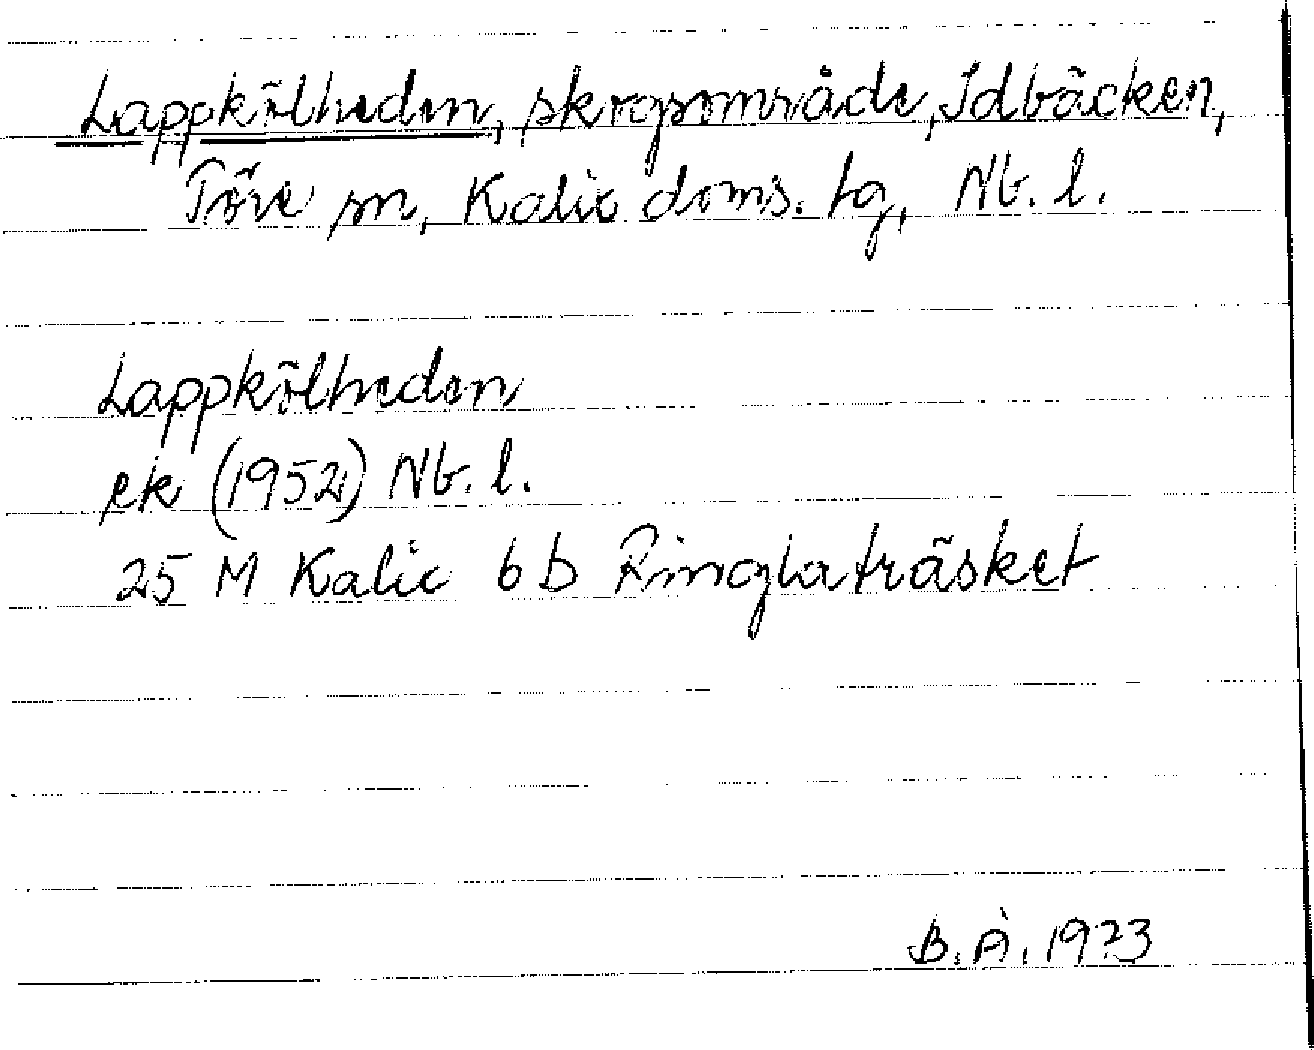 Lappkölheden, skogsområde, Idbäcken,
Töre sn, Kalix doms. tg, Nb. l.
Lappkölheden
ek (1952) Nb. l.
25 M Kalix 6 b Ringlaträsket
B. Å. 1973